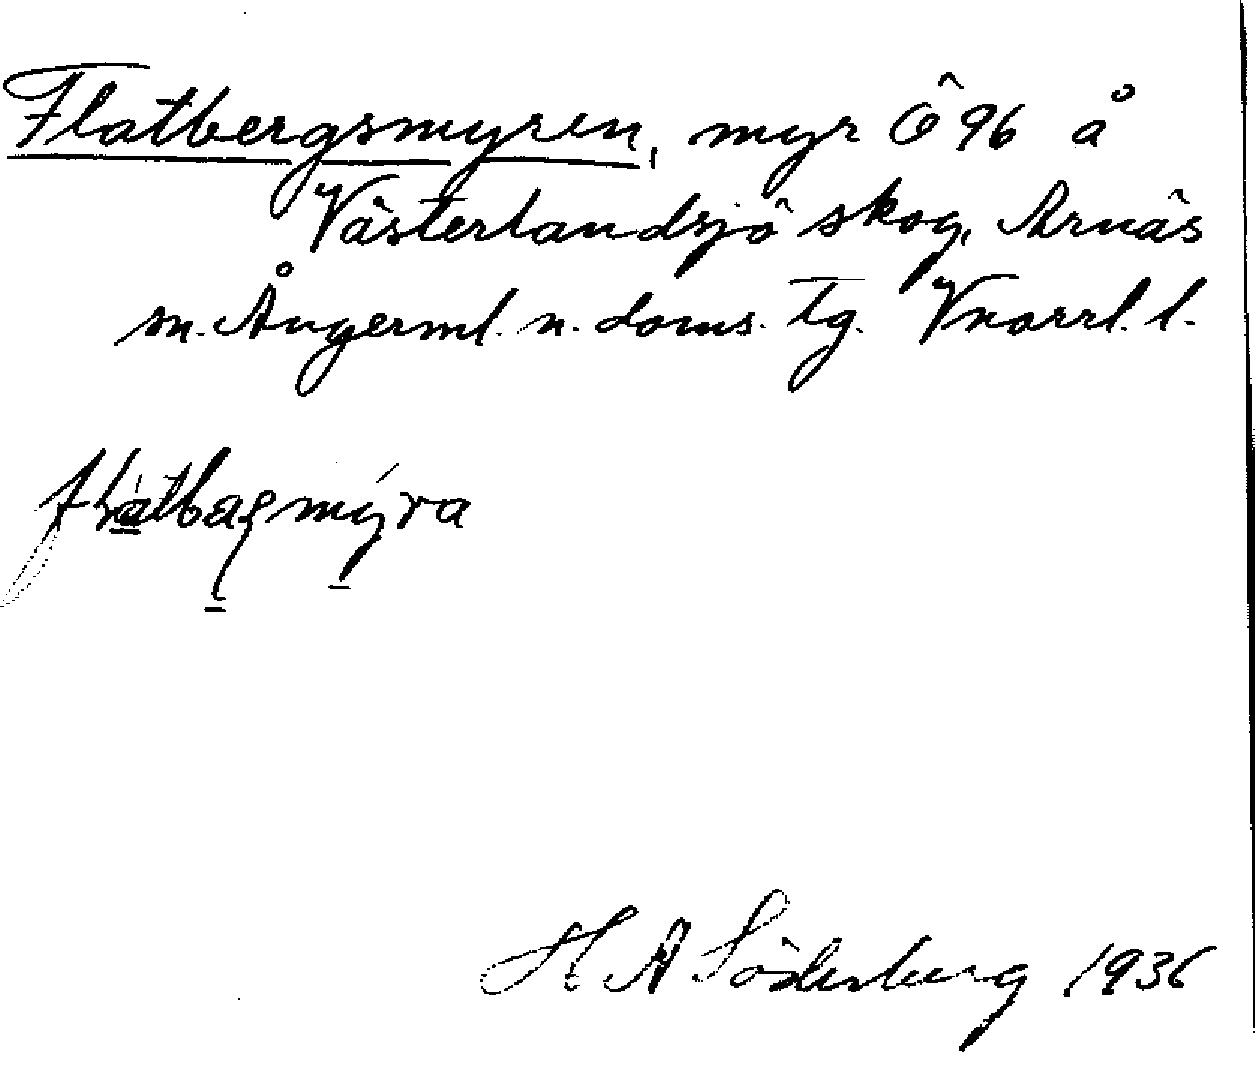 Flatbergsmyren, myr Ö 96 å
Västerlandsjö skog, Arnäs
sn. Ångerml. n. doms. tg. Vnorrl. l.
H A Söderberg 1936